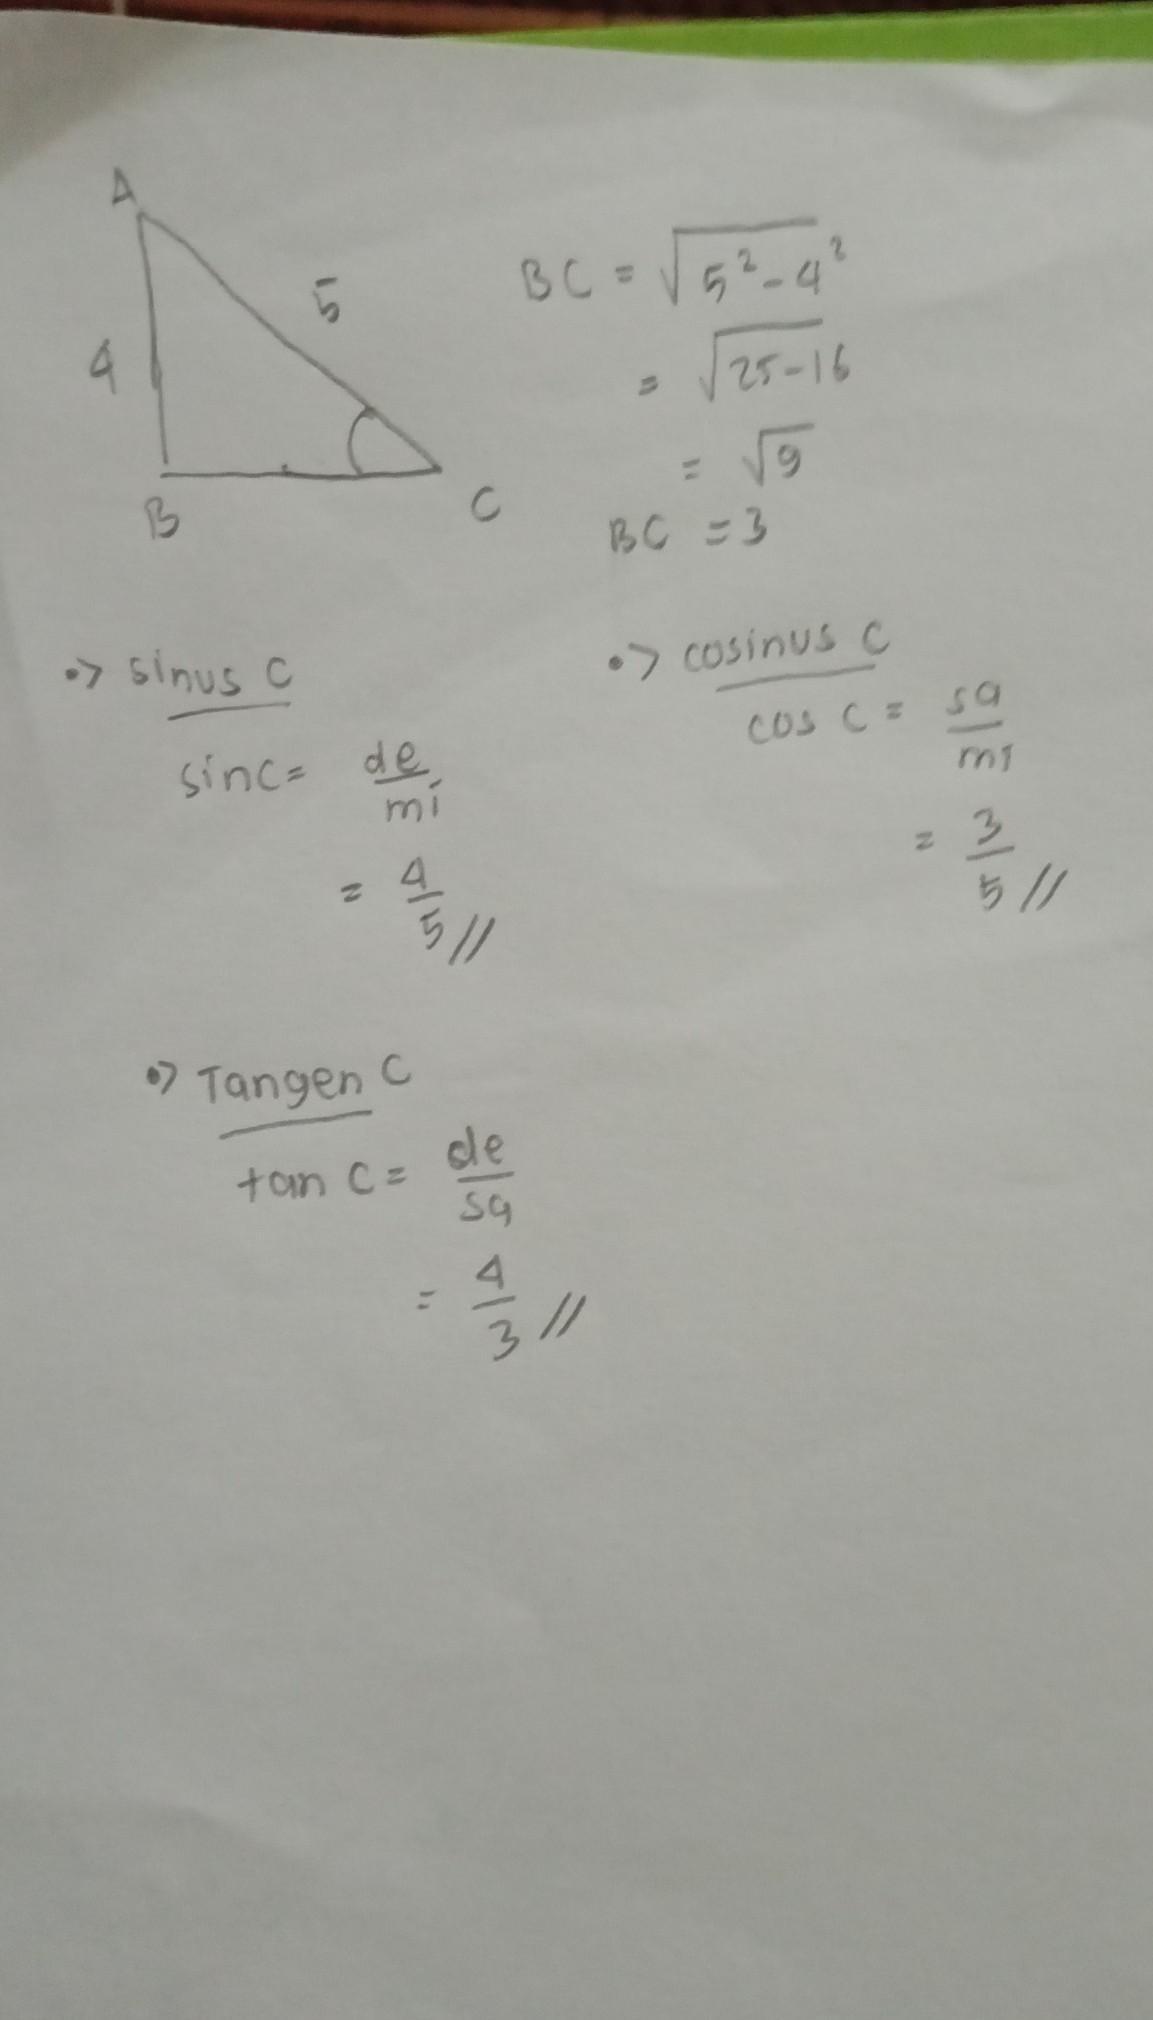 A
5
4
B
C
BC = √5² - 4²
= √25-16
= √9
BC = 3
•> sinus C
sin C = de/mi
= 4/5 //
•> cosinus C
cos C = sa/mi
= 3/5 //
•> Tangen C
tan C = de/sa
= 4/3 //